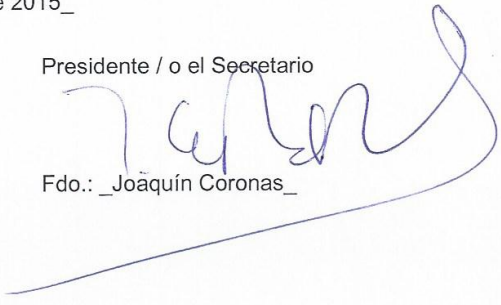 e 2015_
Presidente / o el Secretario
Fdo.: _Joaquín Coronas_